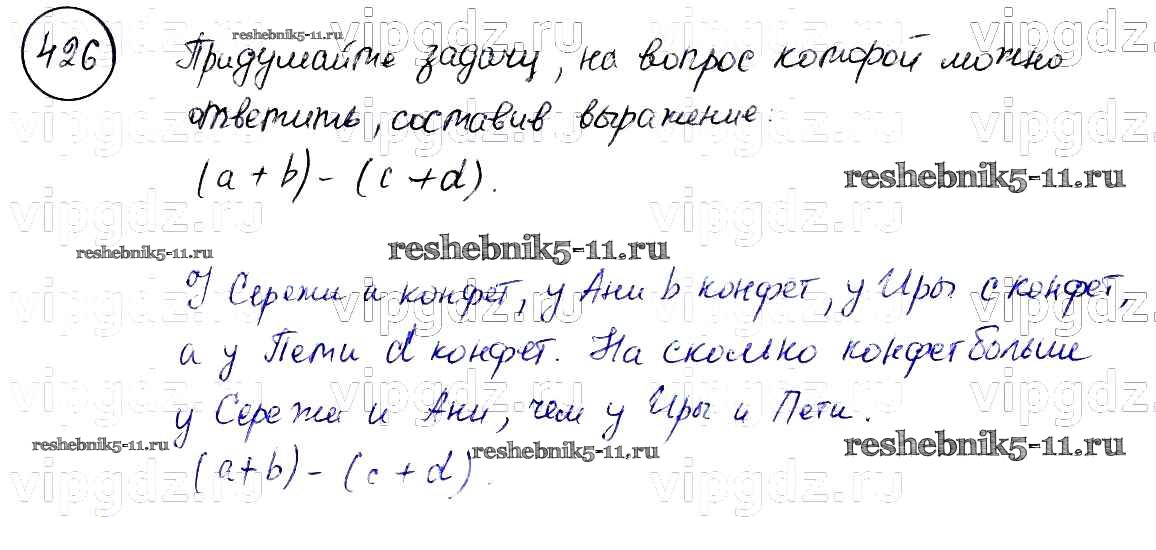 426
Придумайте задачу, на вопрос которой можно
ответить, составив выражение:
(a + b) - (c + d).
У Сережи и конфет, у Ани b конфет, у Иры c конфет,
а у Пети d конфет. На сколько конфет больше
у Сережи и Ани, чем у Иры и Пети.
(a+b) - (c + d).
reshebnik5-11.ru
reshebnik5-11.ru
reshebnik5-11.ru
reshebnik5-11.ru
reshebnik5-11.ru
reshebnik5-11.ru
reshebnik5-11.ru
vipgdz.ru